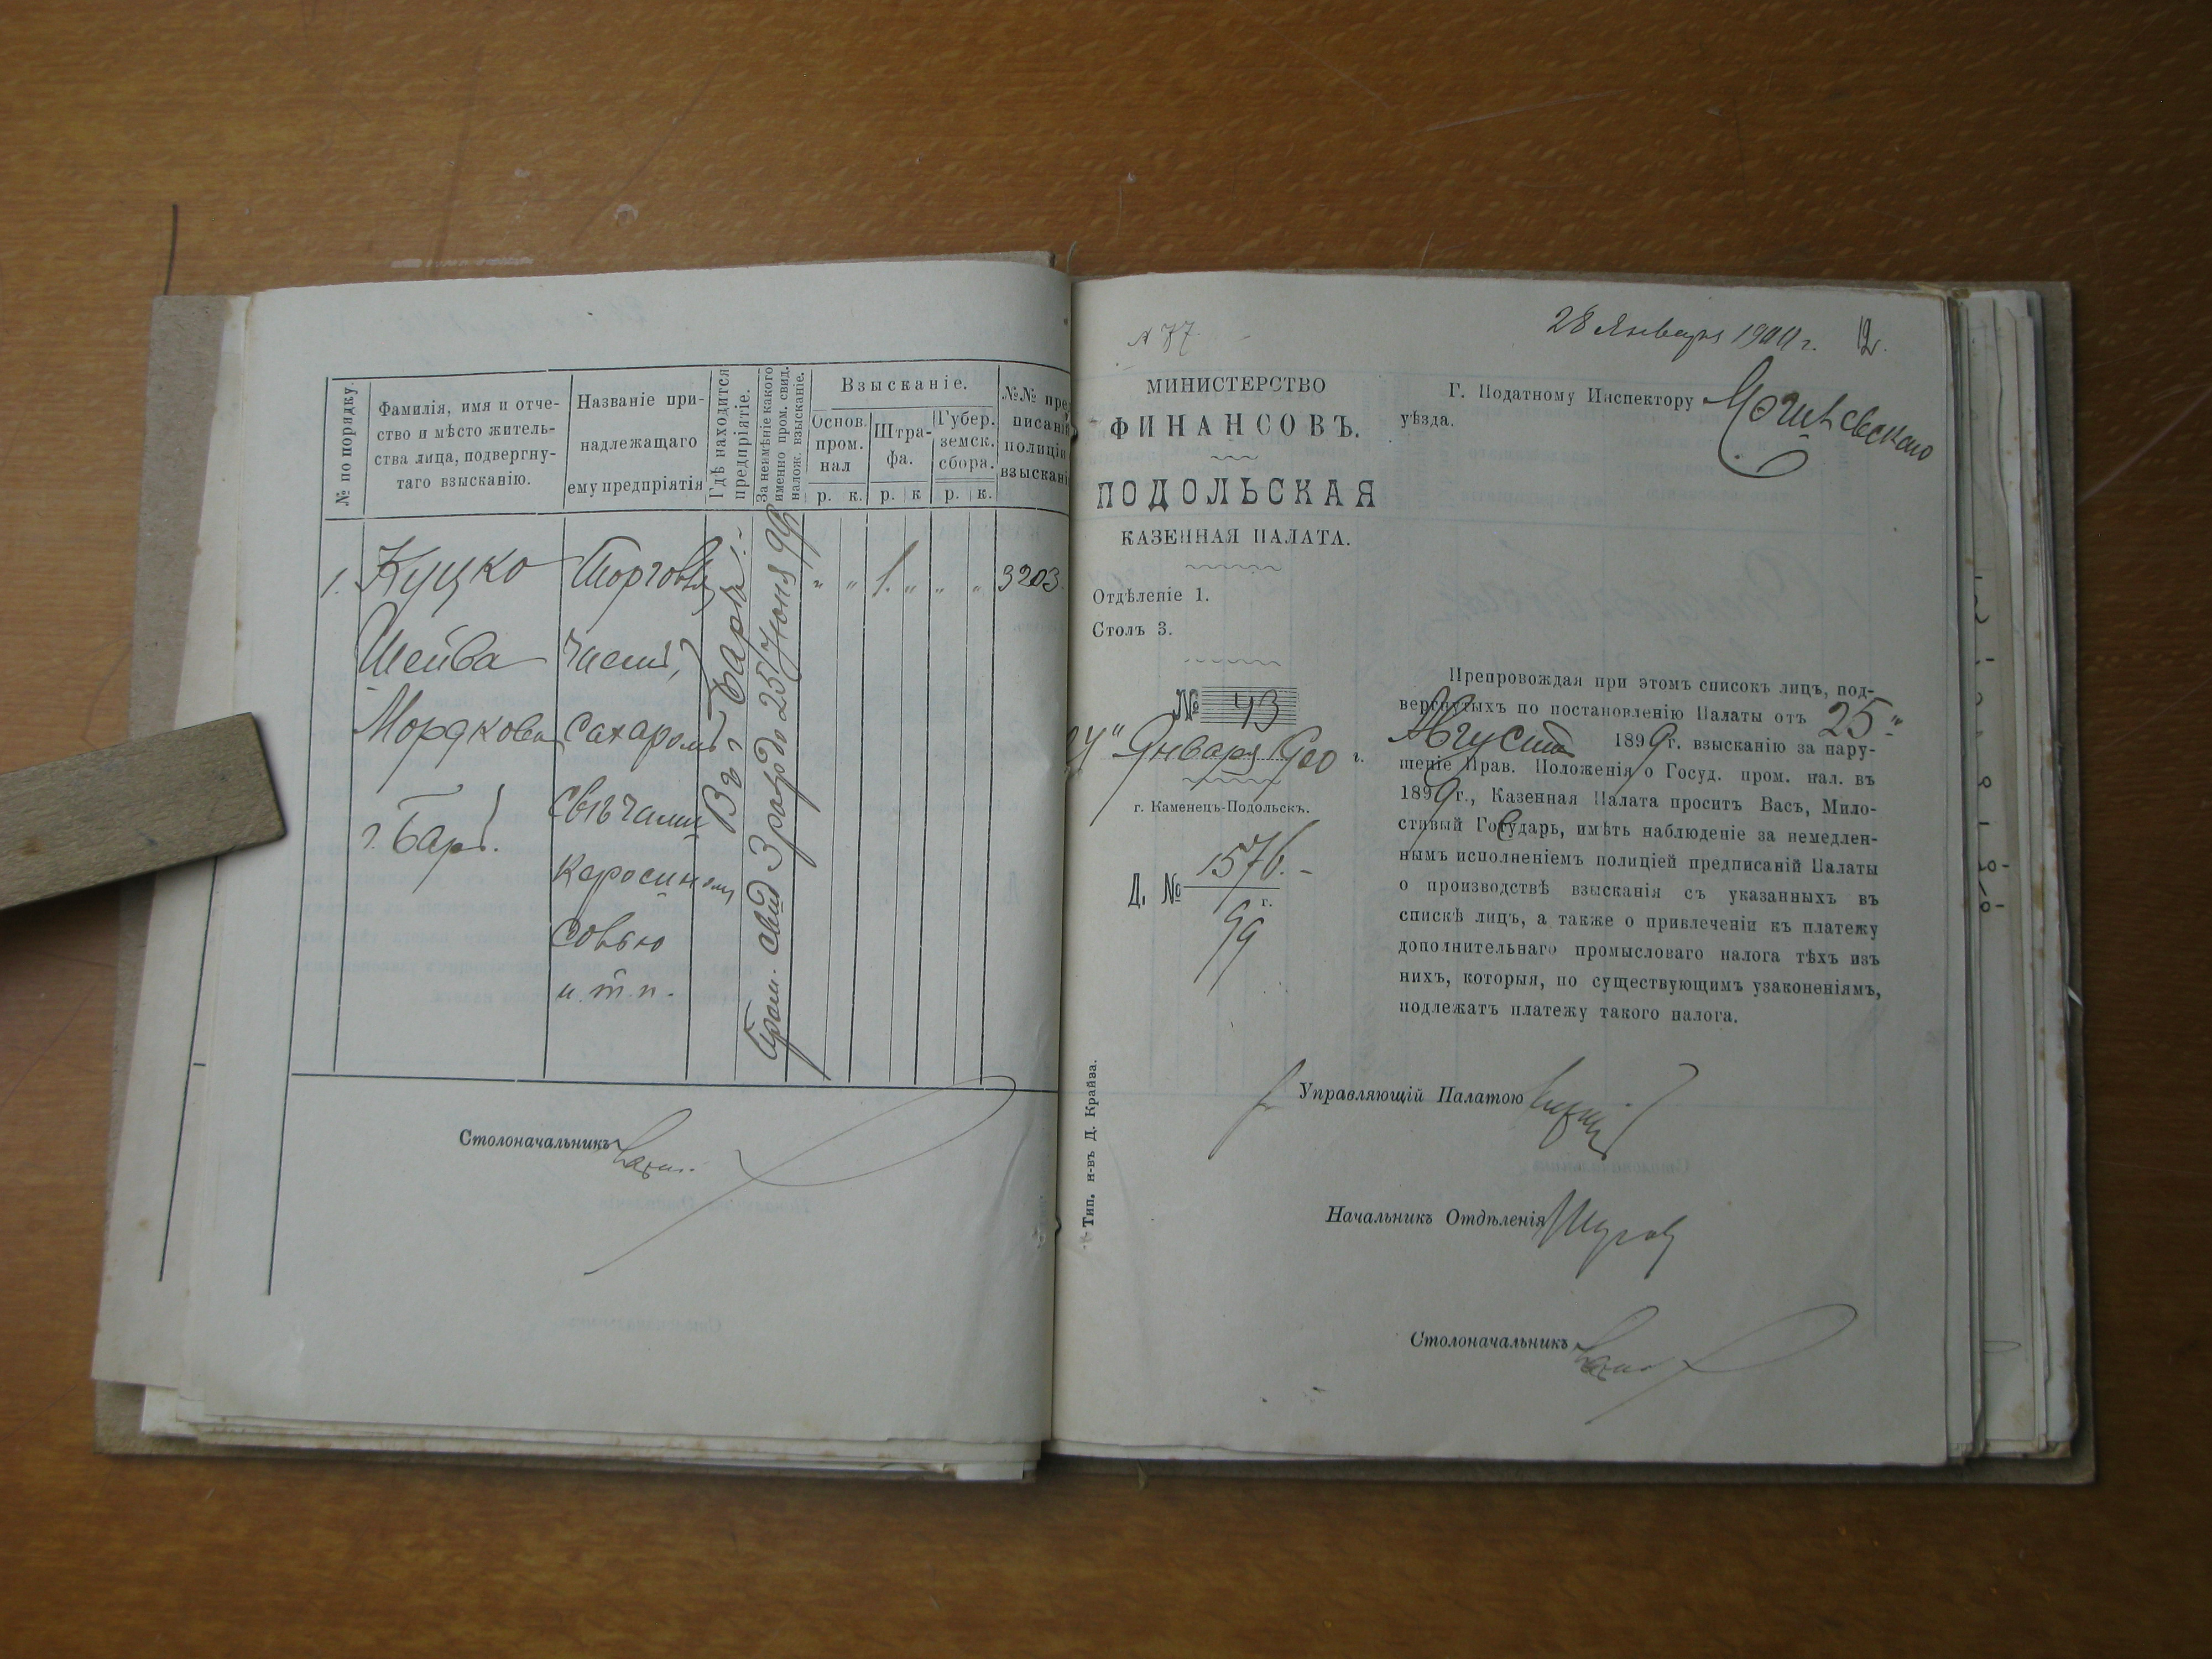 № по порядку.
Фамилія, имя и отче-
ство и мѣсто житель-
ства лица, подвергну-
таго взысканію.
Названіе при-
надлежащаго
ему предпріятія
Гдѣ находится
предпріятіе.
За неимѣніе какого
именно пром. свид.
налож. взысканіе.
Взысканіе.
Основ.
пром.
нал
Штра-
фа.
Губер.
земск.
сбора.
р. к. р. к р. к.
№№ пре
писані
полиціи
взыскані
1.
Куцко
Шейва
Мордкова
г. Баръ.
Торговля
чаемъ,
сахаромъ
свѣчами
керосиномъ
солью
и. т. п.
Въ г. Барѣ.
Пром. свид 3 разр до 25 Іюня 99
" " 1. " " " 3203.
Столоначальникъ
28 Января 1900 г. 12.
77.
МИНИСТЕРСТВО
ФИНАНСОВЪ.
ПОДОЛЬСКАЯ
КАЗЕННАЯ ПАЛАТА.
Отдѣленіе 1.
Столъ 3.
№ 43
24" Января 900 г.
г. Каменецъ-Подольскъ.
Д. № 1576.-
99 г.
Г. Податному Инспектору Могилевскаго
уѣзда.
Препровождая при этомъ списокъ лицъ, под-
вергнутыхъ по постановленію Палаты отъ 25"
Августа 1899 г. взысканію за нару-
шеніе Прав. Положенія о Госуд. пром. нал. въ
1899 г., Казенная Палата проситъ Васъ, Мило-
стивый Государь, имѣть наблюденіе за немедлен-
нымъ исполненіемъ полиціей предписаній Палаты
о производствѣ взысканія съ указанныхъ въ
спискѣ лицъ, а также о привлеченіи къ платежу
дополнительнаго промысловаго налога тѣхъ изъ
нихъ, которыя, по существующимъ узаконеніямъ,
подлежатъ платежу такого налога.
Управляющій Палатою
Начальникъ Отдѣленія
Столоначальникъ
Тип. н-въ Д. Крайза.